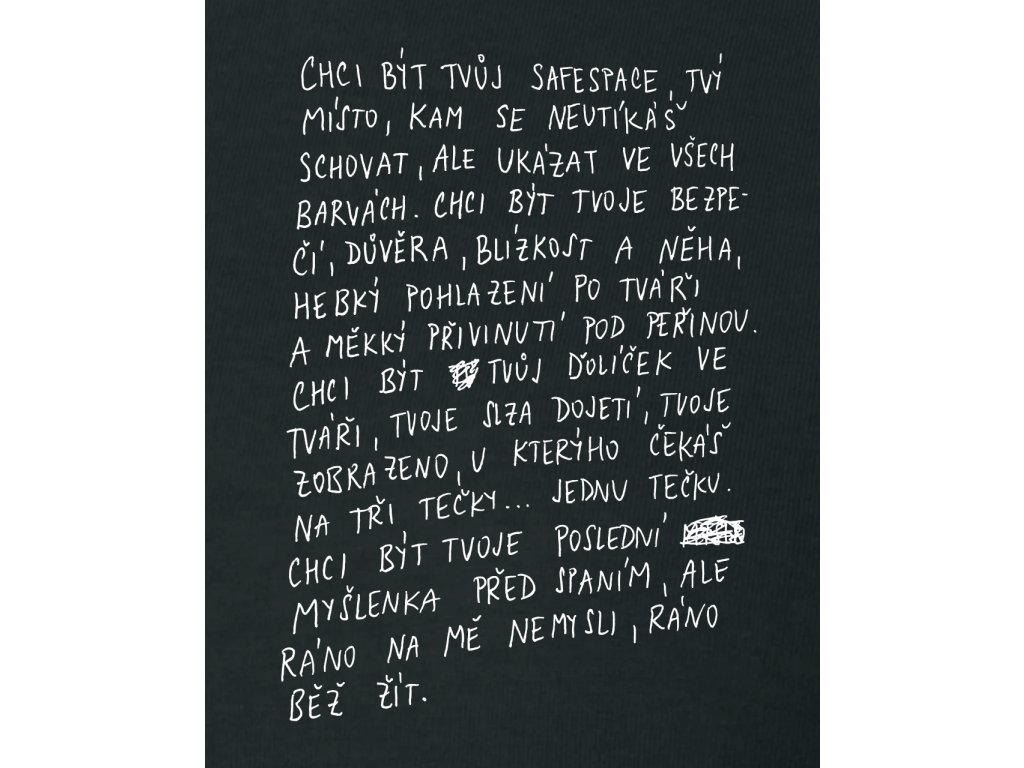 CHCI BÝT TVŮJ SAFESPACE, TVÝ
MÍSTO, KAM SE NEUTÍKÁŠ
SCHOVAT, ALE UKÁZAT VE VŠECH
BARVÁCH. CHCI BÝT TVOJE BEZPE-
ČÍ, DŮVĚRA, BLÍZKOST A NĚHA,
HEBKÝ POHLAZENÍ PO TVÁŘI
A MĚKKÝ PŘIVINUTÍ POD PEŘINOU.
CHCI BÝT TVŮJ ĎOLÍČEK VE
TVÁŘI, TVOJE SLZA DOJETÍ, TVOJE
ZOBRAZENO, U KTERÝHO ČEKÁŠ
NA TŘI TEČKY... JEDNU TEČKU.
CHCI BÝT TVOJE POSLEDNÍ
MYŠLENKA PŘED SPANÍM, ALE
RÁNO NA MĚ NEMYSLI, RÁNO
BĚŽ ŽÍT.